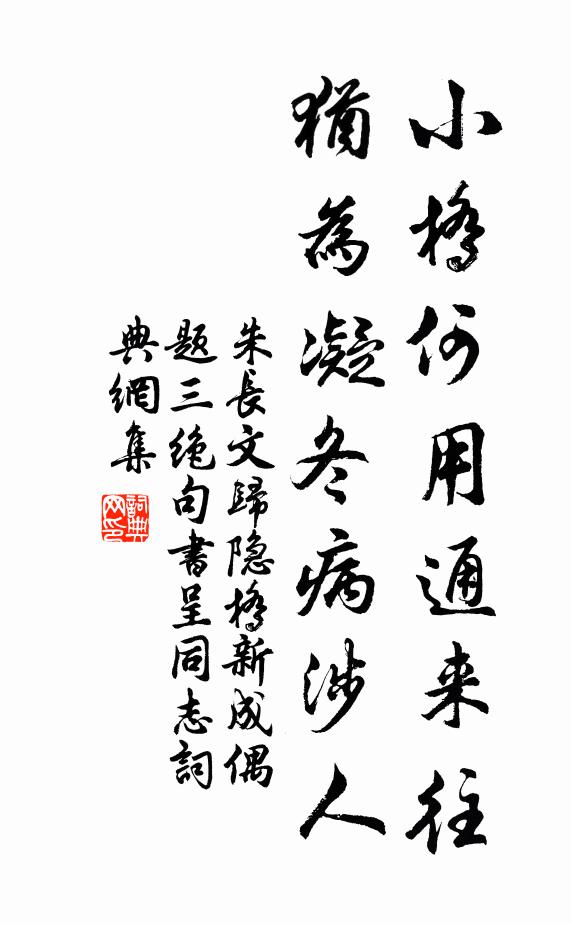 小橋何用通来往
猶為凝冬病涉人
朱長文歸隐橋新成偶
题三绝句書呈同志詞
典網集
詞典
网印